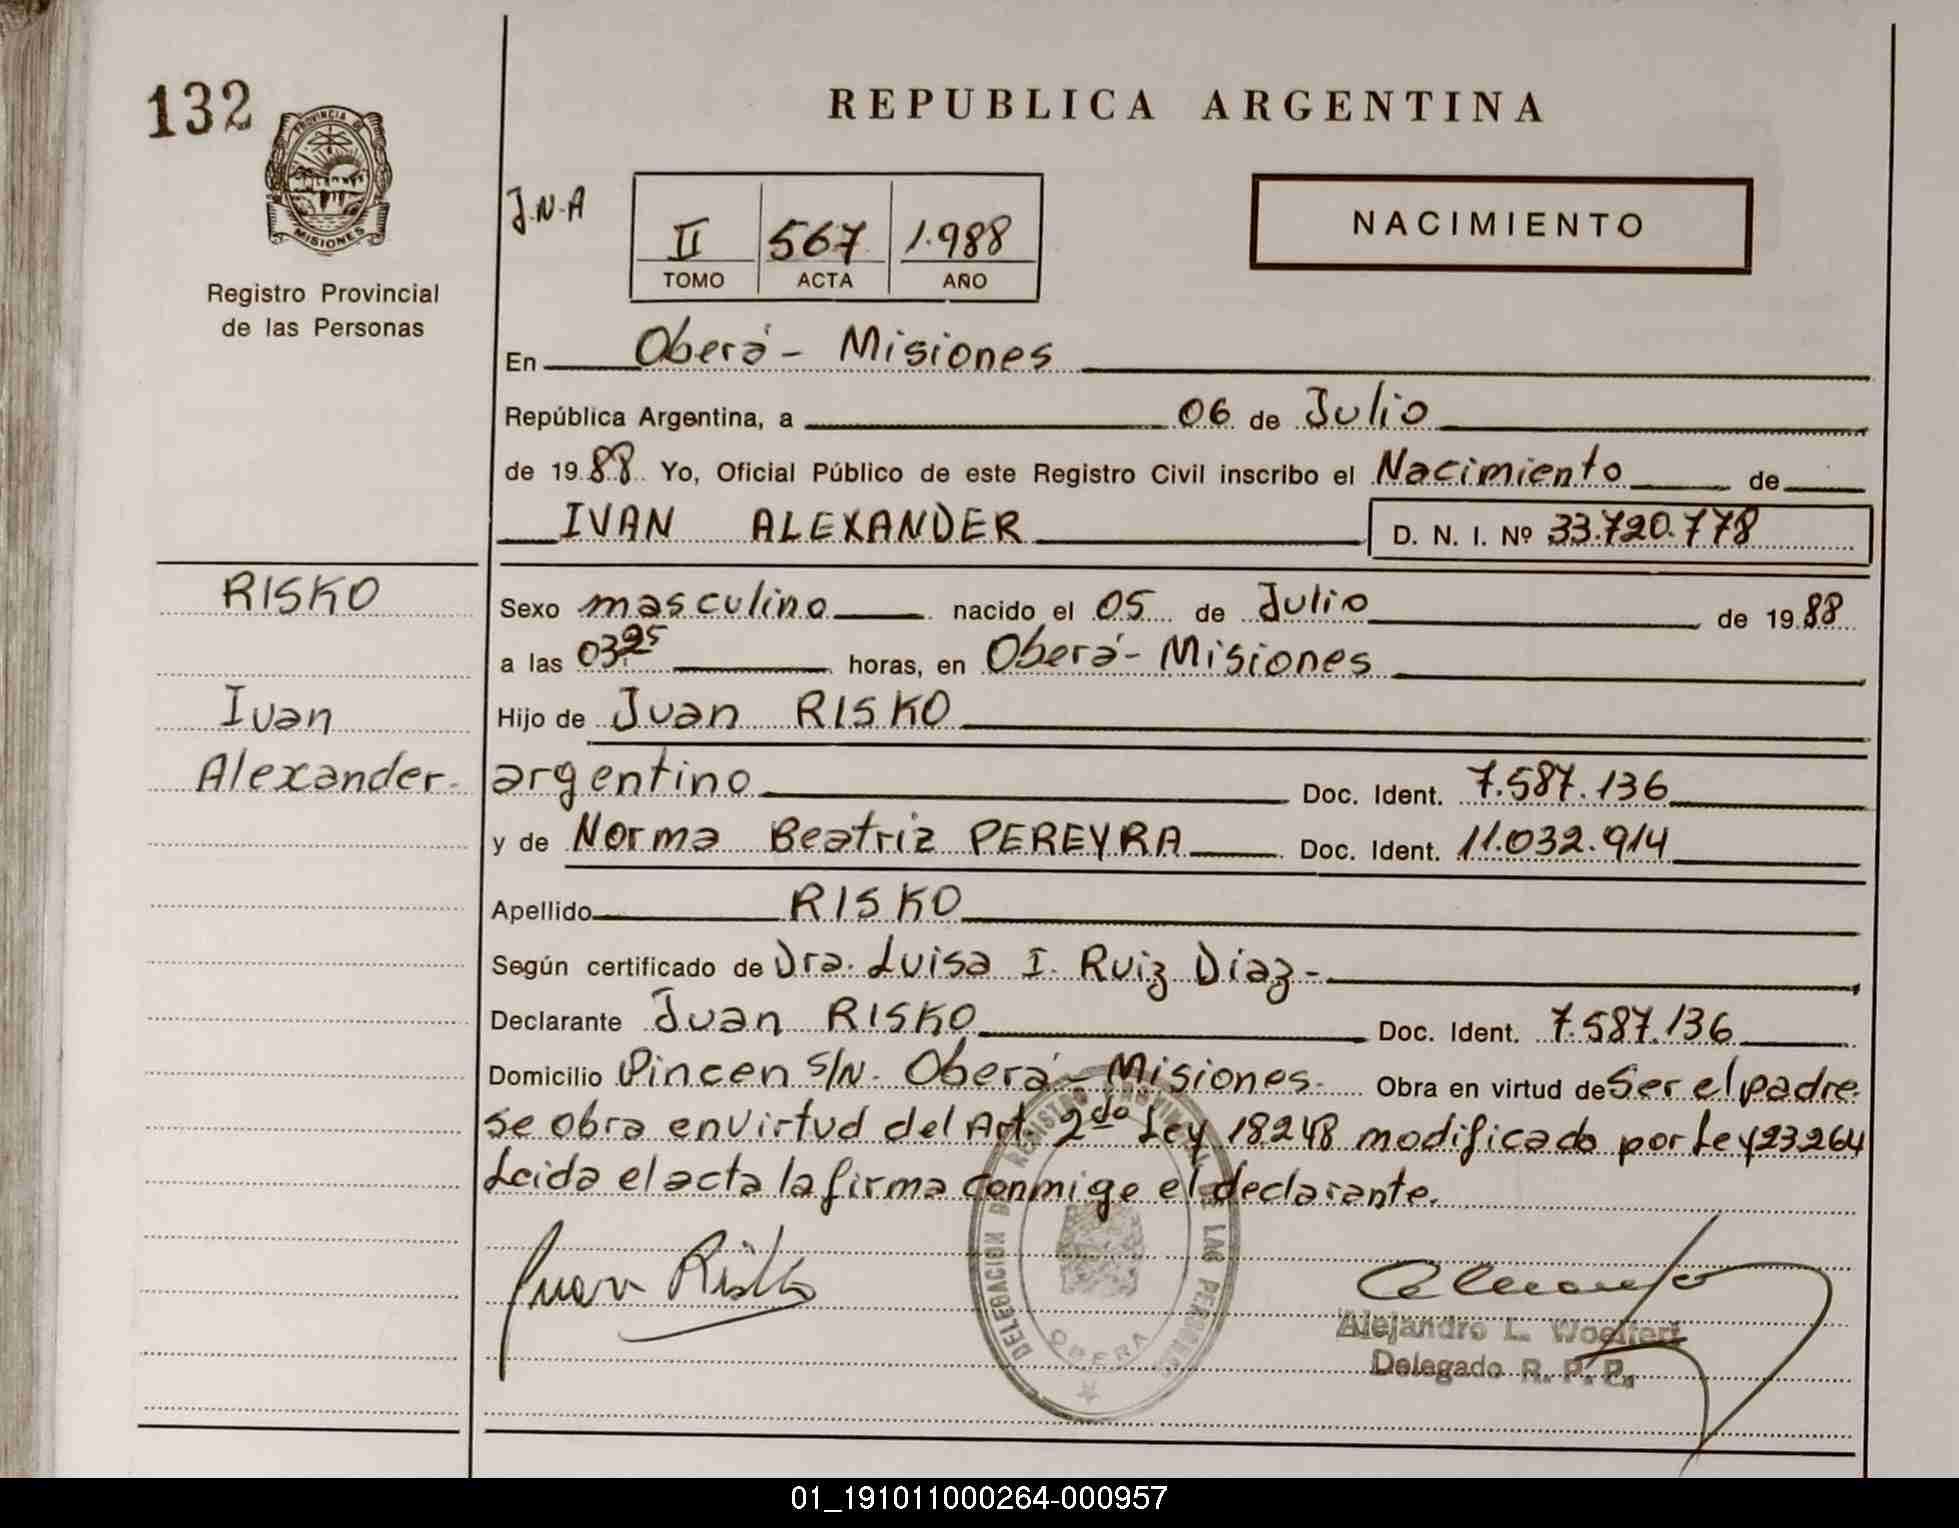 132
PROVINCIA DE
MISIONES
Registro Provincial
de las Personas
REPUBLICA ARGENTINA
J.N.A
II 567 1.988
TOMO ACTA AÑO
NACIMIENTO
En Oberá - Misiones
República Argentina, a 06 de Julio
de 1988 Yo, Oficial Público de este Registro Civil inscribo el Nacimiento de
IVAN ALEXANDER D. N. I. Nº 33.720.778
RISKO
Sexo masculino nacido el 05 de Julio de 1988
a las 03 25 horas, en Oberá - Misiones
Ivan
Hijo de Juan RISKO
Alexander.
argentino Doc. Ident. 7.587.136
y de Norma Beatriz PEREYRA Doc. Ident. 11.032.914
Apellido RISKO
Según certificado de Dra. Luisa I. Ruiz Diaz -
Declarante Juan RISKO Doc. Ident. 7.587.136
Domicilio Pincen S/N. Oberá - Misiones. Obra en virtud de Ser el padre.
se obra en virtud del Art. 2do Ley 18248 modificado por Ley 23264
Leida el acta la firma conmigo el declarante.
Juan Risko
DELEGACION DEL REGISTRO PROVINCIAL DE LAS PERSONAS
OBERA
Alejandro L. Woelfert
Delegado R. P. P.
01_191011000264-000957